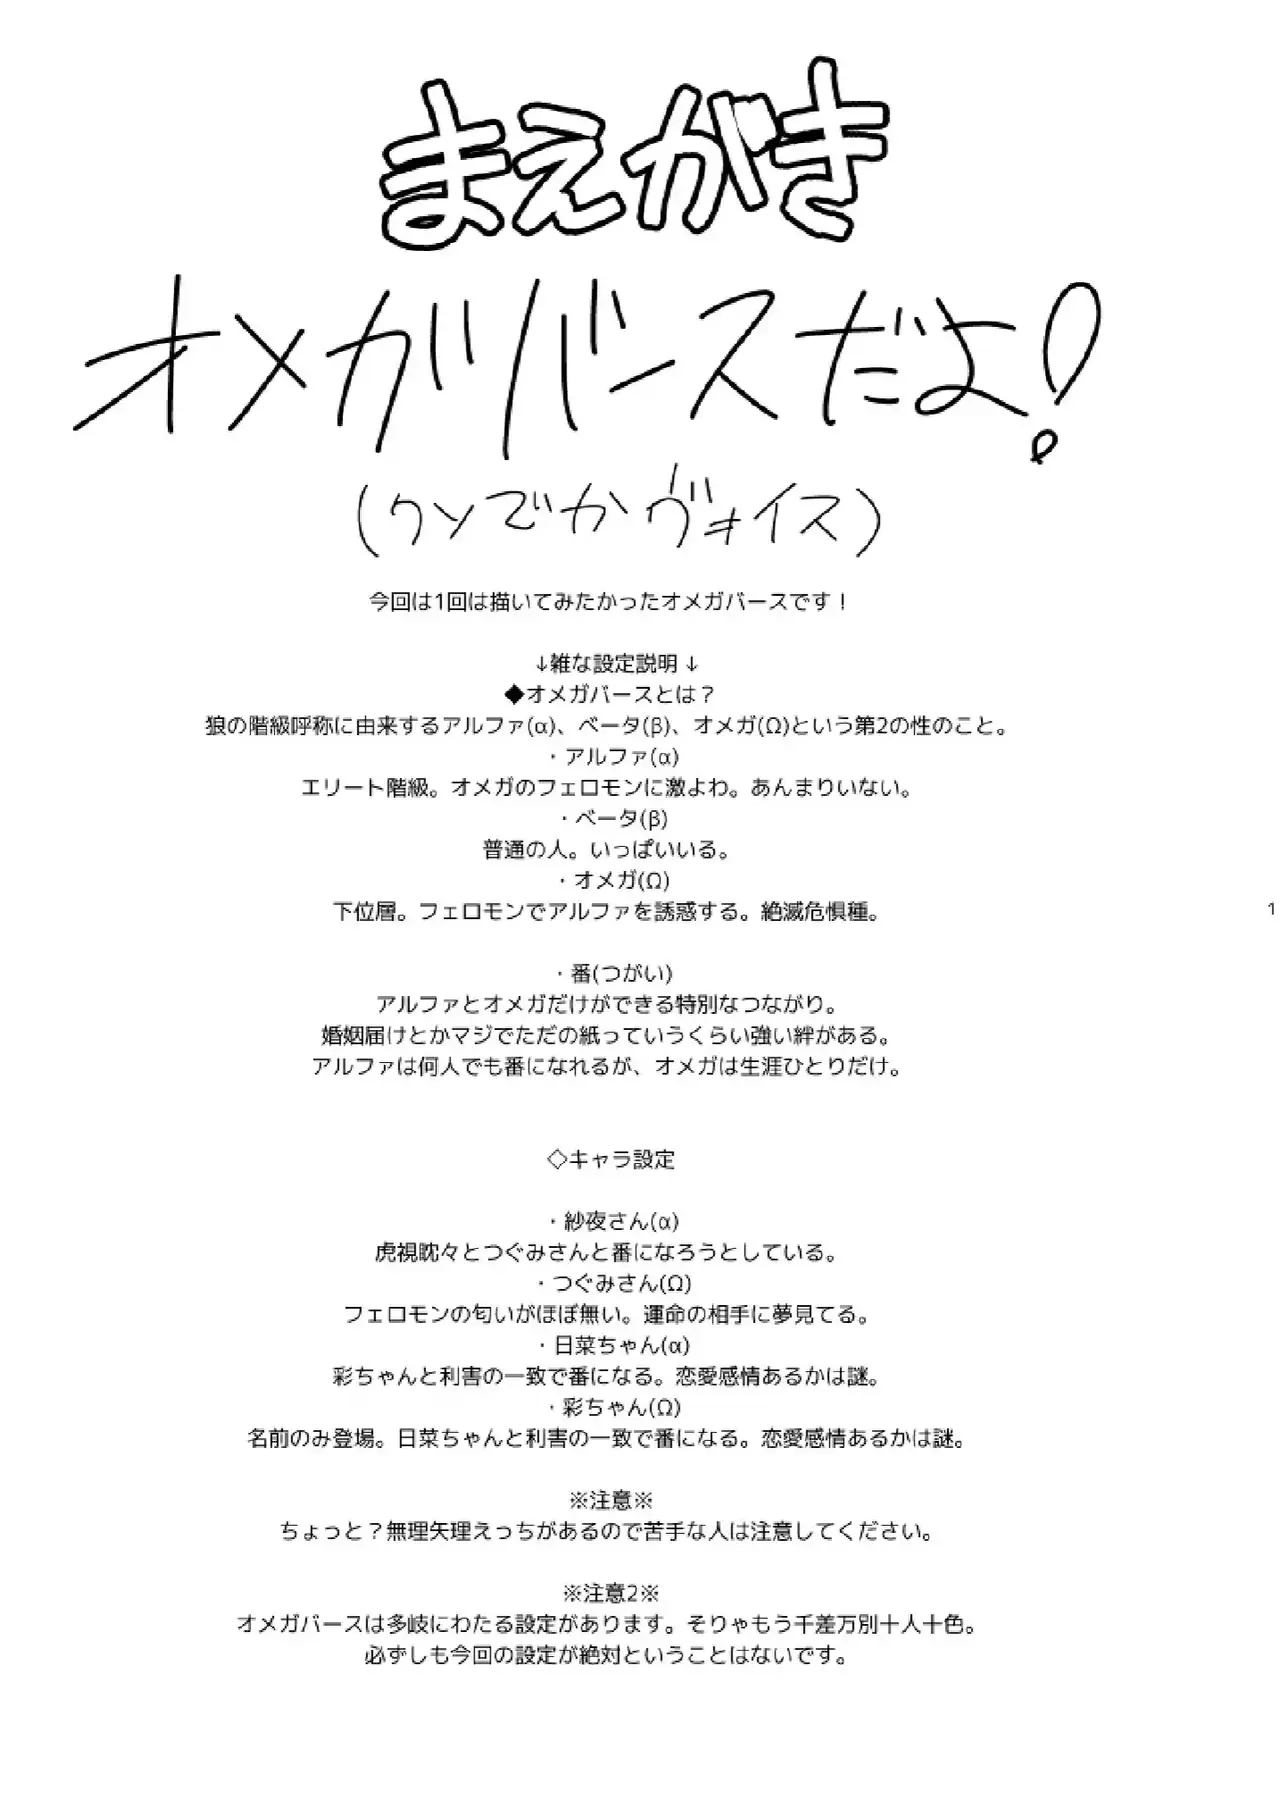 まえがき
オメガバースだよ!
(クソでかヴォイス)
今回は1回は描いてみたかったオメガバースです！
↓雑な設定説明↓
◆オメガバースとは？
狼の階級呼称に由来するアルファ(α)、ベータ(β)、オメガ(Ω)という第2の性のこと。
・アルファ(α)
エリート階級。オメガのフェロモンに激よわ。あんまりいない。
・ベータ(β)
普通の人。いっぱいいる。
・オメガ(Ω)
下位層。フェロモンでアルファを誘惑する。絶滅危惧種。
1
・番(つがい)
アルファとオメガだけができる特別なつながり。
婚姻届けとかマジでただの紙っていうくらい強い絆がある。
アルファは何人でも番になれるが、オメガは生涯ひとりだけ。
◇キャラ設定
・紗夜さん(α)
虎視眈々とつぐみさんと番になろうとしている。
・つぐみさん(Ω)
フェロモンの匂いがほぼ無い。運命の相手に夢見てる。
・日菜ちゃん(α)
彩ちゃんと利害の一致で番になる。恋愛感情あるかは謎。
・彩ちゃん(Ω)
名前のみ登場。日菜ちゃんと利害の一致で番になる。恋愛感情あるかは謎。
※注意※
ちょっと？無理矢理えっちがあるので苦手な人は注意してください。
※注意2※
オメガバースは多岐にわたる設定があります。そりゃもう千差万別十人十色。
必ずしも今回の設定が絶対ということはないです。